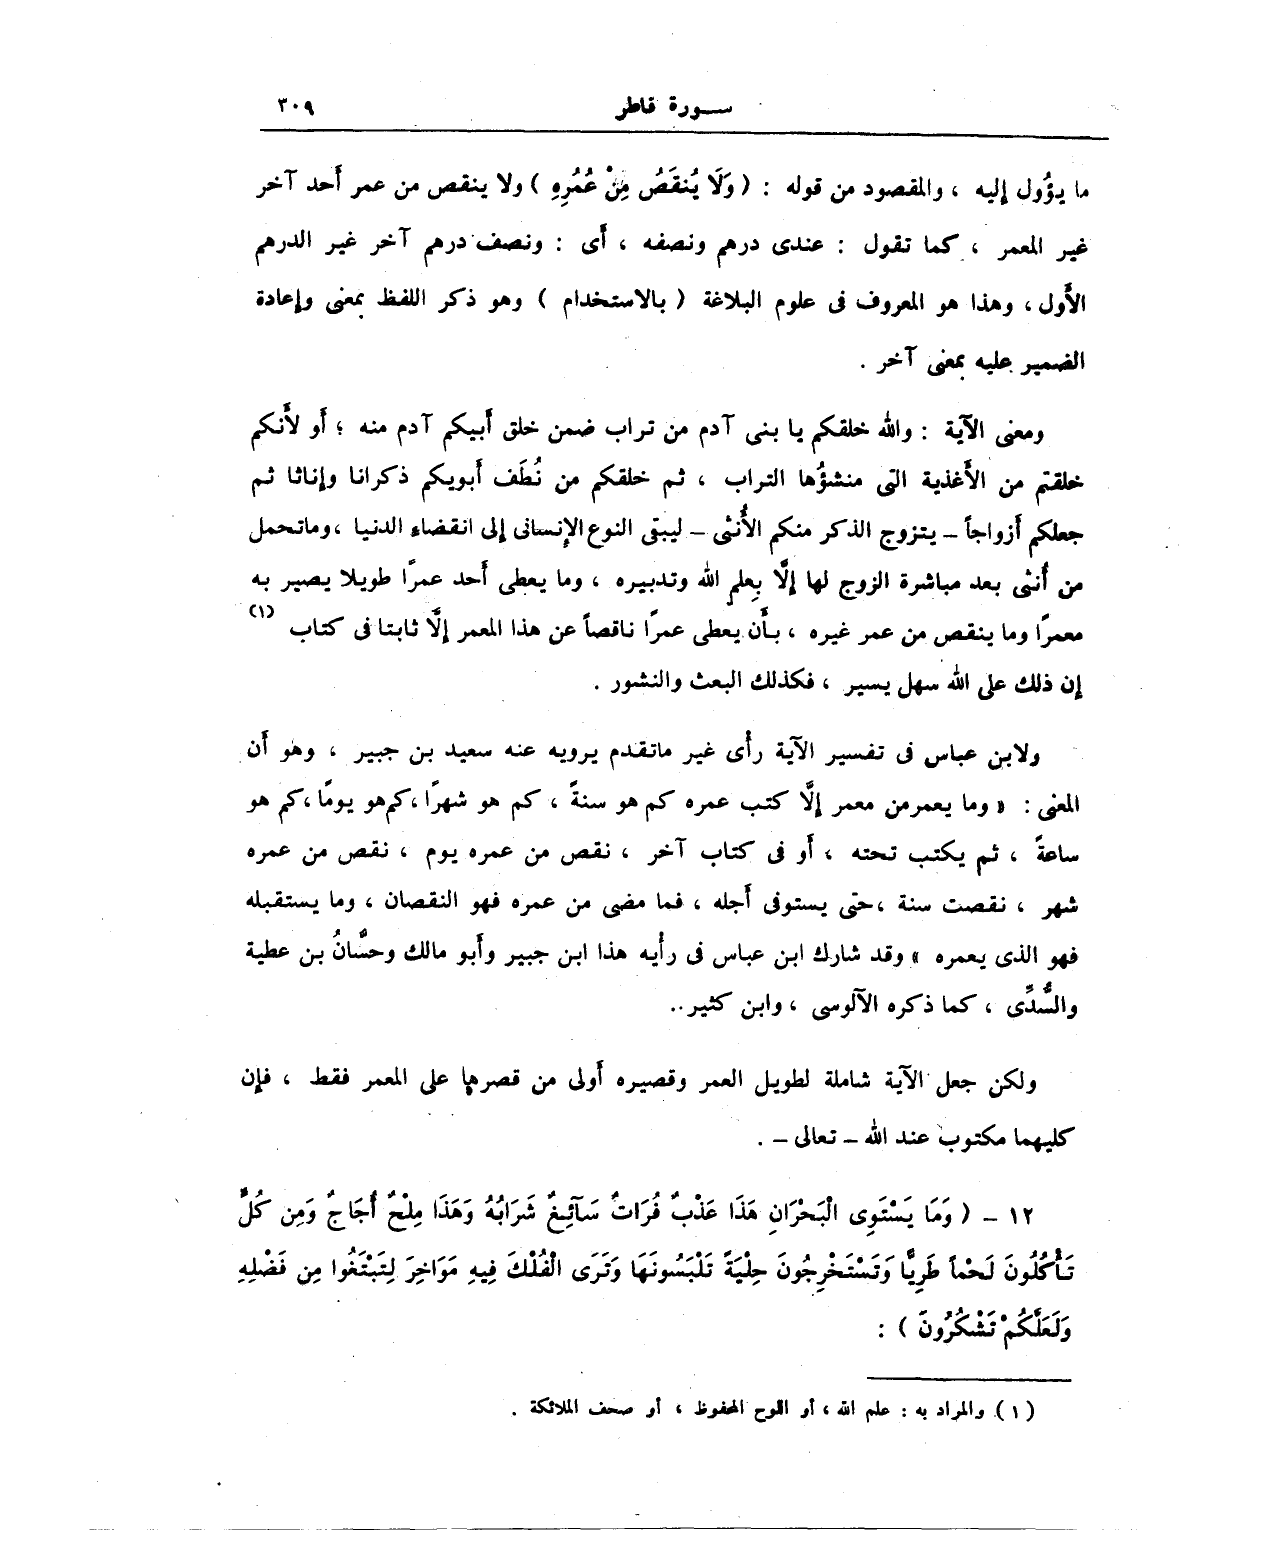 سورة فاطر ٣٠٩
ما يؤُول إليه ، والمقصود من قوله : ( وَلَا يُنقَصُ مِنْ عُمُرِهِ ) ولا ينقص من عمر أَحد آخر
غير المعمر ، كما تقول : عندى درهم ونصفه ، أَى : ونصف درهم آخر غير الدرهم
الأَول ، وهذا هو المعروف فى علوم البلاغة ( بالاستخدام ) وهو ذكر اللفظ بمعنى وإعادة
الضمير عليه بمعنى آخر .
ومعنى الآية : والله خلقكم يا بنى آدم من تراب ضمن خلق أَبيكم آدم منه ؛ أَو لأَنكم
خلقتم من الأَغذية التى منشؤُها التراب ، ثم خلقكم من نُطَف أَبويكم ذكرانا وإناثا ثم
جعلكم أَزواجاً – يتزوج الذكر منكم الأُنثى – ليبقى النوع الإنسانى إلى انقضاء الدنيا ، وماتحمل
من أُنثى بعد مباشرة الزوج لها إلَّا بِعلم الله وتدبيره ، وما يعطى أَحد عمرًا طويلا يصير به
معمرًا وما ينقص من عمر غيره ، بأَن يعطى عمرًا ناقصاً عن هذا المعمر إلَّا ثابتا فى كتاب (١)
إن ذلك على الله سهل يسير ، فكذلك البعث والنشور .
ولابن عباس فى تفسير الآية رأْى غير ماتقدم يرويه عنه سعيد بن جبير ، وهو أَن
المعنى : « وما يعمرمن معمر إلَّا كتب عمره كم هو سنةً ، كم هو شهرًا ، كم هو يومًا ، كم هو
ساعةً ، ثم يكتب تحته ، أَو فى كتاب آخر ، نقص من عمره يوم ، نقص من عمره
شهر ، نقصت سنة ، حتى يستوفى أَجله ، فما مضى من عمره فهو النقصان ، وما يستقبله
فهو الذى يعمره » وقد شارك ابن عباس فى رأْيه هذا ابن جبير وأَبو مالك وحسَّانُ بن عطية
والسُّدِّى ، كما ذكره الآلوسى ، وابن كثير ..
ولكن جعل الآية شاملة لطويل العمر وقصيره أَولى من قصرها على المعمر فقط ، فإن
كليهما مكتوب عند الله – تعالى – .
١٢ – ( وَمَا يَسْتَوِى الْبَحْرَانِ هَذَا عَذْبٌ فُرَاتٌ سَآئِغٌ شَرَابُهُ وَهَذَا مِلْحٌ أُجَاجٌ وَمِن كُلٍّ
تَأْكُلُونَ لَحْماً طَرِيًّا وَتَسْتَخْرِجُونَ حِلْيَةً تَلْبَسُونَهَا وَتَرَى الْفُلْكَ فِيهِ مَوَاخِرَ لِتَبْتَغُوا مِن فَضْلِهِ
وَلَعَلَّكُمْ تَشْكُرُونَ ) :
(١) والمراد به : علم الله ، أو اللوح المحفوظ ، أو صحف الملائكة .